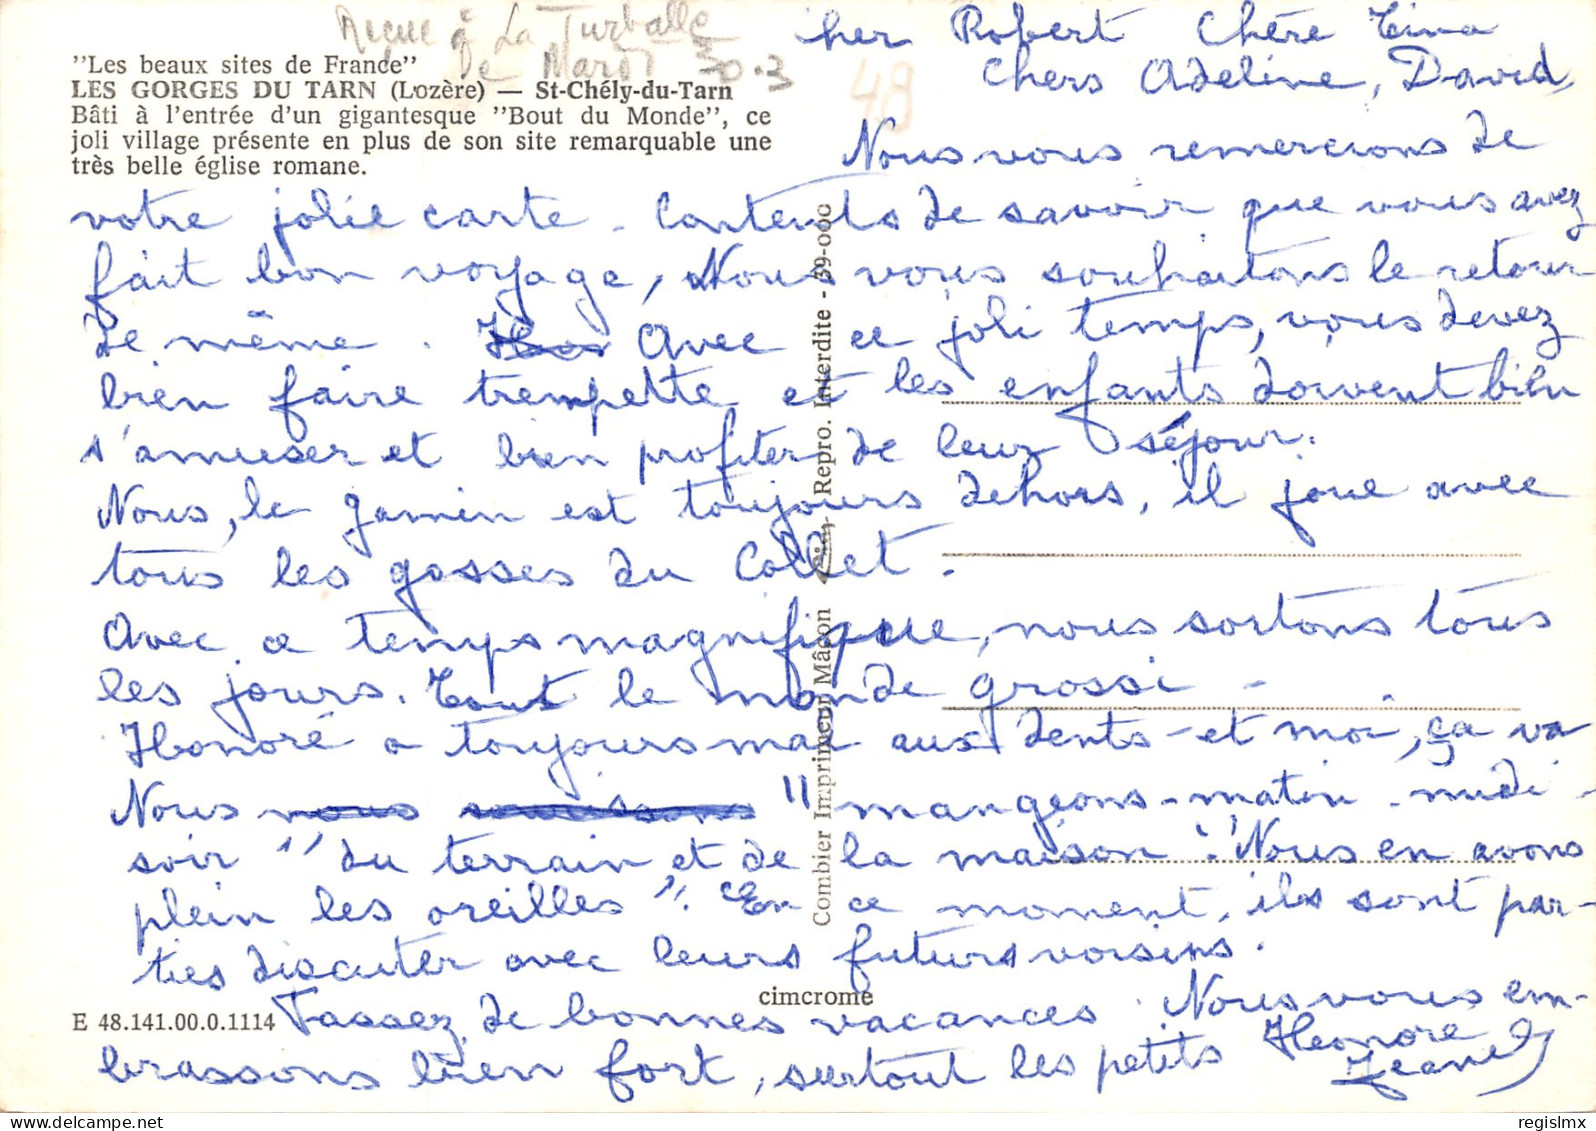 Reçue à La Turballe
le Mardi 30.3
"Les beaux sites de France"
LES GORGES DU TARN (Lozère) — St-Chély-du-Tarn
Bâti à l'entrée d'un gigantesque "Bout du Monde", ce
joli village présente en plus de son site remarquable une
très belle église romane.
48
Cher Robert Chère Tina
Chers Adeline, David,
Nous vous remercions de
votre jolie carte. Contents de savoir que vous avez
fait bon voyage, Nous vous souhaitons le retour
de même. Avec ce joli temps, vous devez
bien faire trempette et les enfants doivent bien
s'amuser et bien profiter de leur séjour.
Nous, le gamin est toujours dehors, il joue avec
tous les gosses du Collet.
Avec ce temps magnifique, nous sortons tous
les jours. Tout le monde grossi.
Honoré a toujours mal aux dents - et moi, ça va
Nous nous "mangeons - matin - midi -
soir" du terrain et de la maison. "Nous en avons
plein les oreilles". En ce moment, ils sont par-
tis discuter avec leurs futurs voisins.
Passez de bonnes vacances. Nous vous em-
brassons bien fort, surtout les petits
Honoré
Combier Imprimeur Mâcon Cim Repro. Interdite - 39-000
cimcrome
E 48.141.00.0.1114
regislmx